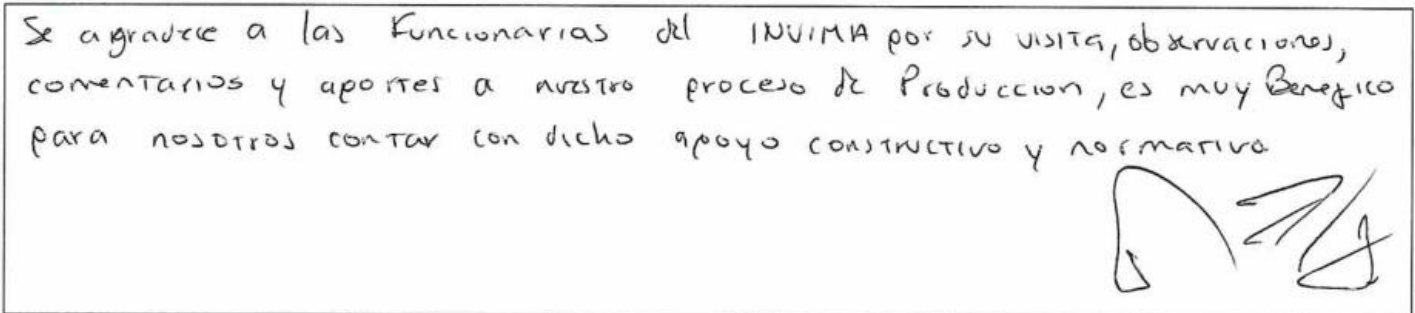 Se agradece a las Funcionarias del INVIMA por su visita, observaciones,
comentarios y aportes a nuestro proceso de Produccion, es muy Benefico
para nosotros contar con dicho apoyo constructivo y normativo